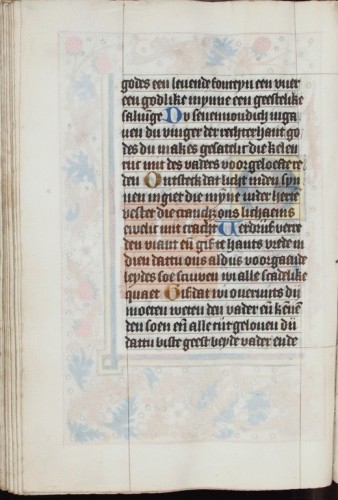 godes een leuende fonteyn een vuer
een godlike mynne een geestelike
saluige Du seuenuoudich inga
uen du vinger der rechterhant go
des du makes gesatich die kelen
rijc mit des vaders voorgeloefte re
den Ontsteck dat licht inden syn
nen ingiet die mynne inder herte
vestet die cranck ons lichaems
ewelic mit cracht Verdrijf verre
den viant en gif te hants vrede in
dien dattu ons aldus voorgaende
leydes soe scuwen wi alle scadelike
quaet Gif dat wi ouermits di
moeten weten den vader en kennē
den soen en alle tijt gelouen di
dattu biste geest beyde vader ende